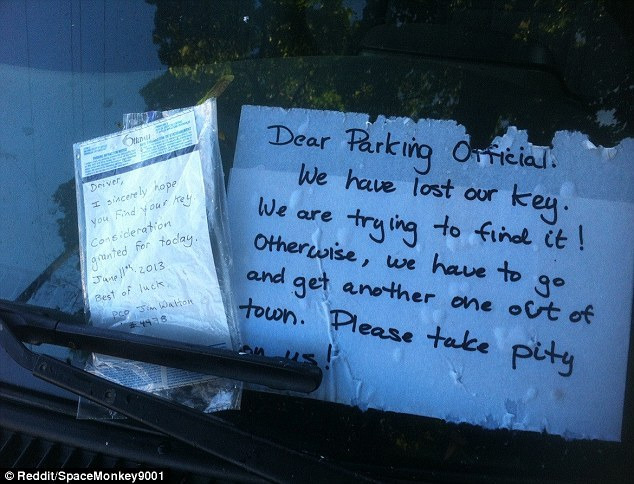 Driver,
I sincerely hope
you find your key
Consideration
granted for today.
June 11th, 2013
Best of luck.
PCO Jim Walton
#4478
Dear Parking Official.
We have lost our key.
We are trying to find it!
Otherwise, we have to go
and get another one out of
town. Please take pity
on us!
© Reddit/SpaceMonkey9001